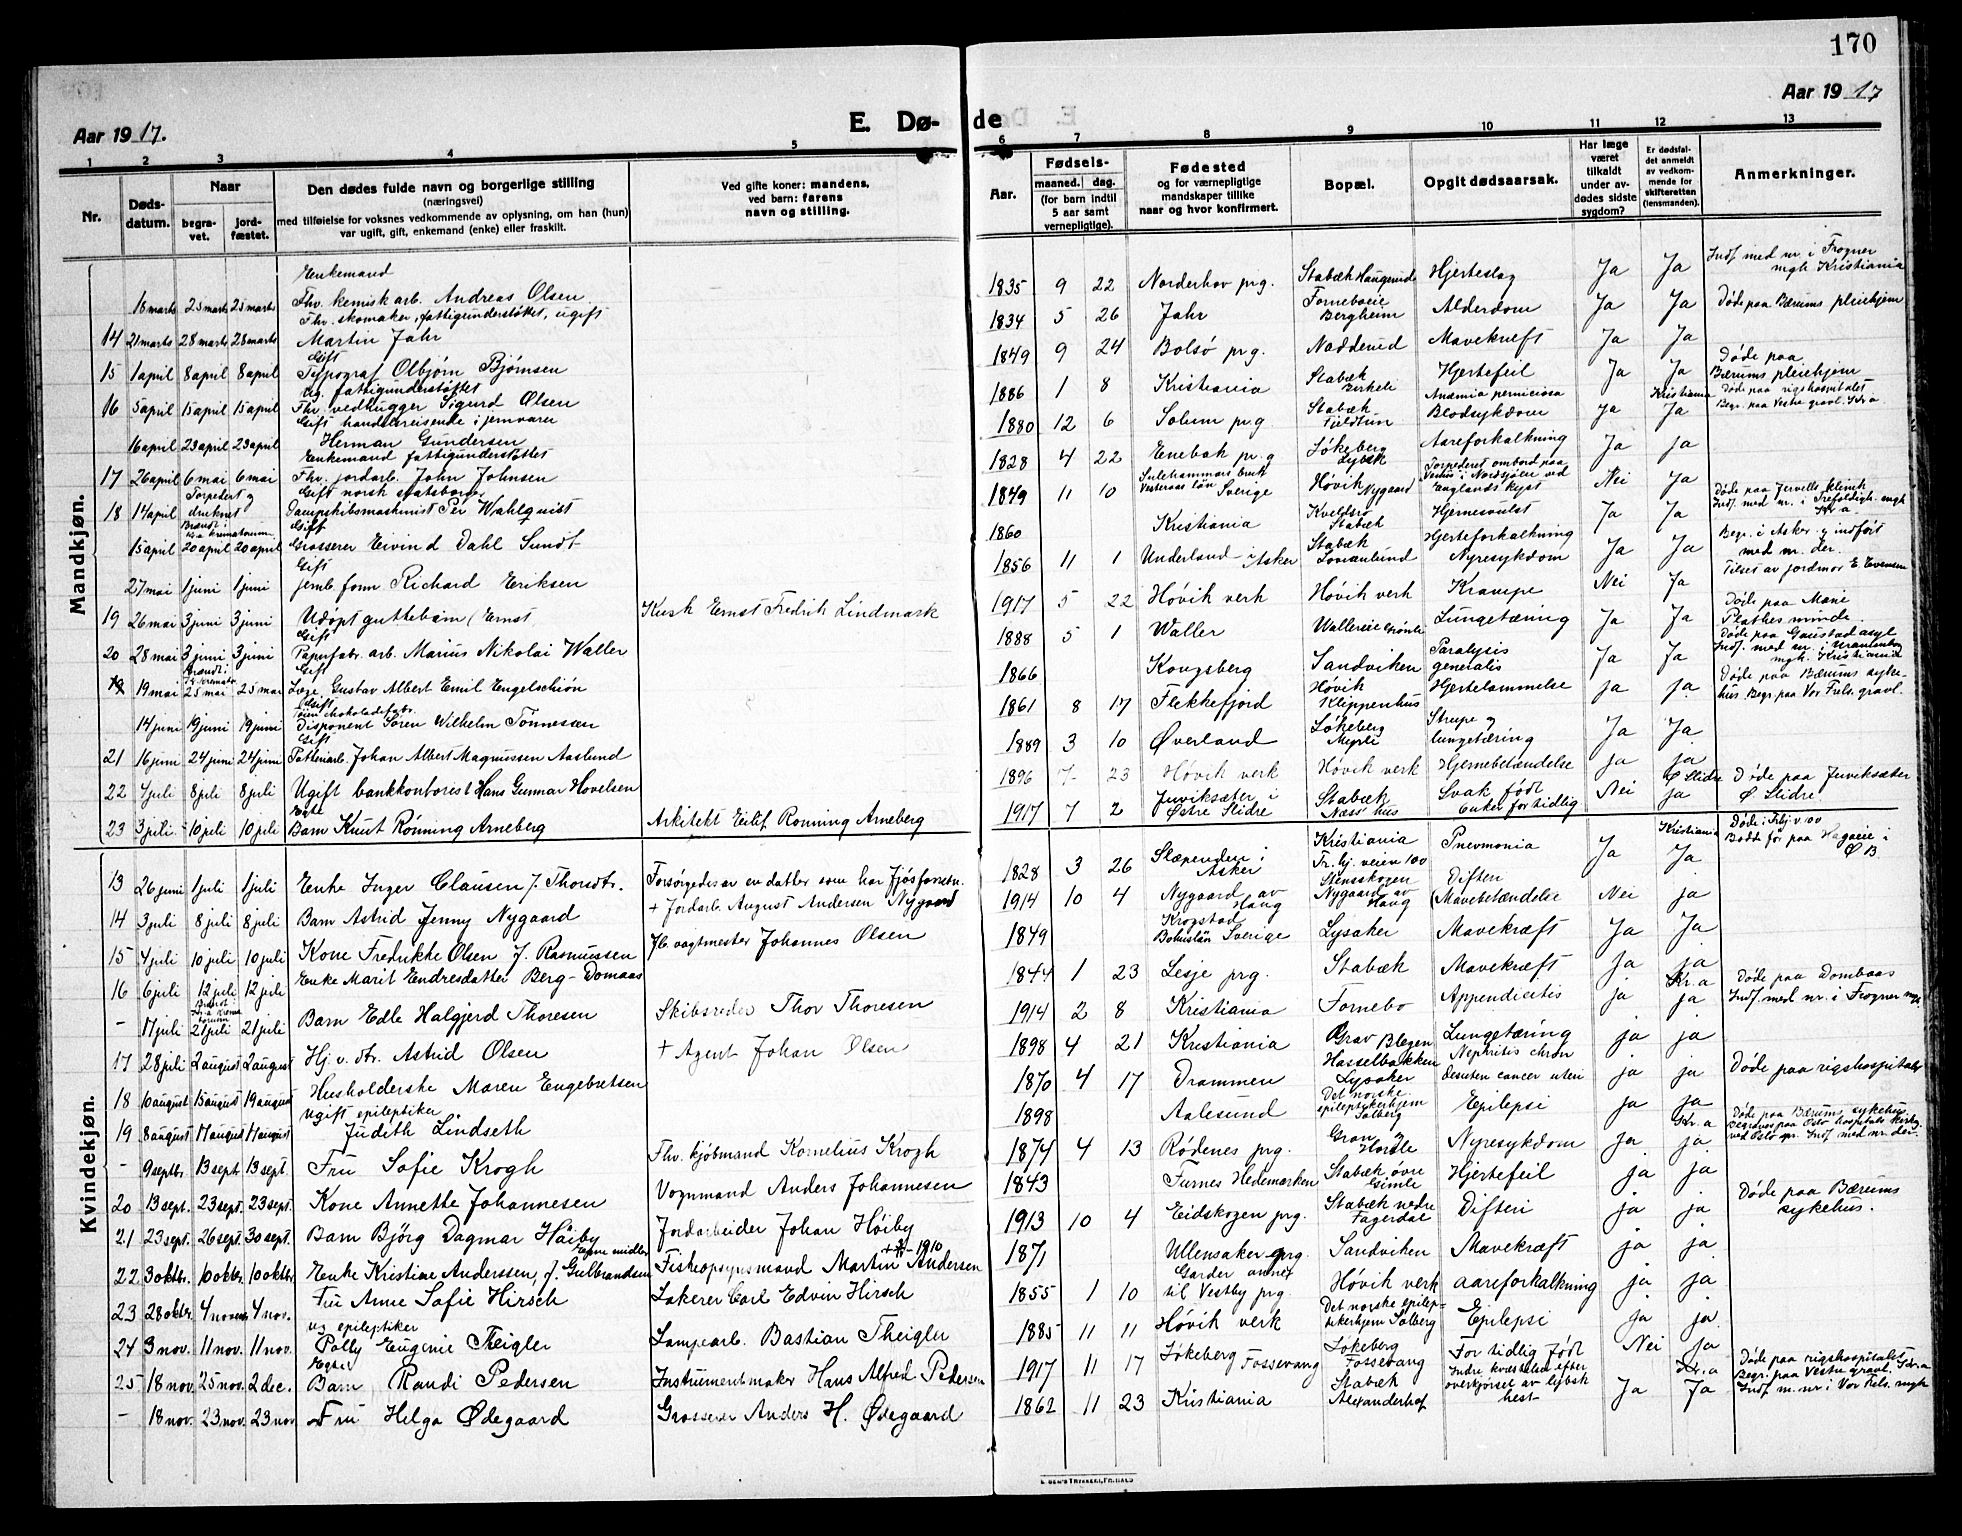 170
Aar 1917.
E. Dø-
de
Aar 1917
1 2 3 4 5 6 7 8 9 10 11 12 13
Nr.
Døds-
datum.
Naar
begra-
vet.
jord-
fæstet.
Den dødes fulde navn og borgerlige stilling
(næringsvei)
med tilføielse for voksnes vedkommende av oplysning, om han (hun)
var ugift, gift, enkemand (enke) eller fraskilt.
Ved gifte koner: mandens,
ved barn: farens
navn og stilling.
Aar.
Fødsels-
maaned. dag.
(for barn indtil
5 aar samt
vernepligtige).
Fødested
og for værnepligtige
mandskaper tillike
naar og hvor konfirmert.
Bopæl.
Opgit dødsaarsak.
Har læge
været
tilkaldt
under av-
dødes sidste
sygdom?
Er dødsfal-
det anmeldt
av vedkom-
mende for
skifteretten
(lensmanden).
Anmerkninger.
Mandkjøn.
Enkemand
18 marts 25 marts 25 marts Fhv. kemisk arb. Andreas Olsen 1835 9 22 Norderhov prg. Stabæk Haugsrude Hjerteslag Ja Ja Indf. med nr. i Frogner mgh. Kristiania
Fhv. skomaker, fattigunderstøttet, ugift
14 21 marts 28 marts 28 marts Martin Jahr 1834 5 26 Jahr Forneboeie Bergheim Alderdom Ja Ja Døde paa Bærums pleiehjem
Gift
15 1 april 8 april 8 april Typograf Olbjørn Bjørnsen 1849 9 24 Bolsø prg. Nadderud Mavekræft Ja Ja
Ug. fattigunderstøttet
16 5 april 15 april 15 april Fhv. vedhugger Sigurd Olsen 1886 1 8 Kristiania Stabæk Birkeli Hjertefeil Ja Ja Døde paa Bærums pleiehjem
Gift handelsreisende i jernvarer
16 april 23 april 23 april Herman Gundersen 1880 12 6 Solum prg Stabæk Anæmia perniciosa Blodsykdom Ja Kristiania Ja Døde paa rigshospitalet Begr. paa Vestre gravl. Kr.a
Enkemand fattigunderstøttet
17 26 april 6 mai 6 mai Fhv. jordarb. John Johnsen 1828 4 22 Enebak prg Løkeberg Lybæk Aareforkalkning Ja ja
Gift norsk statsborger
18 14 april Torpedert og druknet Dampskibsmaskinist Per Wahlquist 1849 11 10 Surahammars bruk Vesterås län Sverige Høvik Nygaard Torpederet ombord paa i Nordsjøen ved Englands kyst Nei Ja
Gift
15 april Brændt i Kr.a krematorium 20 april 20 april Grosserer Eivind Dahl Sundt 1860 Kristiania Kveldsro Stabæk Hjernesvulst Ja Ja Døde paa Jervells klinik Indf. med nr. i Trefoldigh. mgh Kr.a
Gift
27 mai 1 juni 1 juni jernb. form Richard Eriksen 1856 11 1 Underland i Asker Stabæk Hjerteforkalkning Nyresykdom Ja Ja Begr. i Asker og indført med nr. der.
19 26 mai 3 juni 3 juni Udøpt guttebarn (Ernst Kusk Ernst Fredrik Lindmark 1917 5 22 Høvik verk Høvik verk Krampe Nei Ja Tilset av jordmor E. Evensen
Gift
20 28 mai 3 juni 3 juni Papirfabr. arb. Marius Nikolai Waller 1888 5 1 Waller Wallereie Grønli Lungetæring Ja Ja Døde paa Marie Plathes minde.
Gift
19 mai Brændt i Kr.a kremator. 25 mai 25 mai Læge Gustav Albert Emil Engelschiøn 1866 Kongsberg Sandviken Paralysis generalis Ja Ja Døde paa Gaustad asyl Indf. med nr. i Uranienborg mgh. Kristiania
Gift
14 juni 19 juni 19 juni Disponent Sören Wilhelm Tönnesen 1861 8 17 Flekkefjord Høvik Klippenhus Hjertelammelse ja Ja Døde paa Bærums syke-hus. Begr. paa Vor Frels. gravl.
Gift
21 16 juni 24 juni 24 juni Fattemarb. Johan Albert Magnussen Aaslund 1889 3 10 Øverland Løkeberg Myrli Strupe og lungetæring Ja Ja
22 4 juli 8 juli 8 juli Ugift bankkontorist Hans Gunnar Hovelsen 1896 7 23 Høvik verk Høvik verk Hjernebetændelse ja ja
Egte
23 3 juli 10 juli 10 juli Barn Knut Rönning Arneberg Arkitekt Eilif Rönning Arneberg 1917 7 2 Juviksæter i Østre Slidre Stabæk Næss hus Svak født uker for tidlig Nei Ø Slidre ja Døde paa Juviksæter Ø Slidre.
Kvindekjøn.
13 26 juni 1 juli 1 juli Enke Inger Clausen f. Thorsdtr. Forsørgedes av en datter som har 1828 3 26 Slæpenden i Asker Kristiania Fr. hj. veien 100 Pneumonia Ja Kristiania Ja Døde i Frbj.v 100 Bodde før paa Hagaeie i Ø B.
14 3 juli 8 juli 8 juli Barn Astrid Jenny Nygaard + Jordarb. August Andersen Nygaard 1914 10 4 Nygaard av Haug Stensskogen Nygaard av Haug Difteri (Mavebetændelse Nei ja
15 4 juli 10 juli 10 juli Kone Fredrikke Olsen f. Rasmussen Jb. vagtmester Johannes Olsen 1849 Krogstad Bohuslän Sverige Lysaker Mavekræft Ja Ja
16 6 juli 12 juli 12 juli Enke Marit Endresdatter Berg-Domaas 1844 1 23 Lesje prg. Stabæk Mavekræft Ja ja Døde paa Dombaas
- 17 juli Brændt i Kr.a krematorium 21 juli 21 juli Barn Edle Halgjerd Thoresen Skibsreder Thor Thoresen 1914 2 8 Kristiania Fornebo Appendicitis ja Kr.a ja Indf. med nr. i Frogner mgh
17 28 juli 2 august 2 august Hj. v. dtr. Astrid Olsen + Agent Johan Olsen 1898 4 21 Kristiania Grav Blegen Lungetæring ja ja
18 10 august 15 august 19 august Husholderske Maren Engebretsen 1870 4 17 Drammen Hasselbakken Lysaker Nephritis chron desuten cancer uteri ja ja Døde paa rigshospitalet
ugift epileptiker
19 8 august 17 august 17 august Judith Lindseth 1898 Aalesund Det norske epileptikerhjem Solberg Epilepsi ja ja
- 9 septbr. 13 sept. 13 sept. Fru Sofie Krogh Fhv. kjøbmand Kornelius Krogh 1874 4 13 Rødenes prg. Nyresykdom Ja Kr.a ja Døde paa Bærums sykehus Begraves paa Oslo hospitals kirkeg. ved Oslo Indf. med nr. der.
20 13 sept. 23 sept. 23 sept. Kone Annette Johannesen Vognmand Anders Johannesen 1843 Furnes Hedemarken Stabæk øvre Gimle Hjertefeil ja ja
21 23 sept. 26 sept. 30 sept. Barn Bjørg Dagmar Høiby Jordarbeider Johan Høiby 1913 10 4 Eidskogen prg. Stabæk nedre Fagerdal Difteri ja ja Døde paa Bærums sykehus.
Egne midler
22 3 oktbr. 10 oktbr. 10 oktbr. Enke Kristine Anderssen, f. Gulbrandsen Fiskeopsynsmand Martin Andersen 1910 1871 Ullensaker prg. Sandviken Mavekræft ja ja
23 28 oktbr. 4 novem. 4 nov. Fru Anne Sofie Hirsch Lakerer Carl Edvin Hirsch 1855 1 10 Garder annex til Vestby prg. Høvik verk aareforkalkning ja ja
ug epileptiker
24 3 nov. 11 nov. 11 nov. Polly Eugenie Theigler Lampearb. Bastian Theigler 1885 11 11 Høvik verk Det norske epilep-tikerhjem Solberg Epilepsi ja ja.
Egte
25 18 nov. 25 nov. 2 dec. Barn Randi Pedersen Instrumentmaker Hans Alfred Pedersen 1917 11 17 Løkeberg Fossevang Løkeberg Fossevang For tidlig født Nei Ja
- 18 nov. 23 nov. 23 nov. Fru Helga Ødegaard Grosserer Anders H. Ødegaard 1862 11 23 Kristiania Stabæk Alexanderhof Indre kvæstelse efter overkjørsel av hest Ja Kr.a Ja Døde paa rigshospitalet Begr. paa Vestre gravl. Kr.a Indf. m. nr. i Vor Frels. mgh